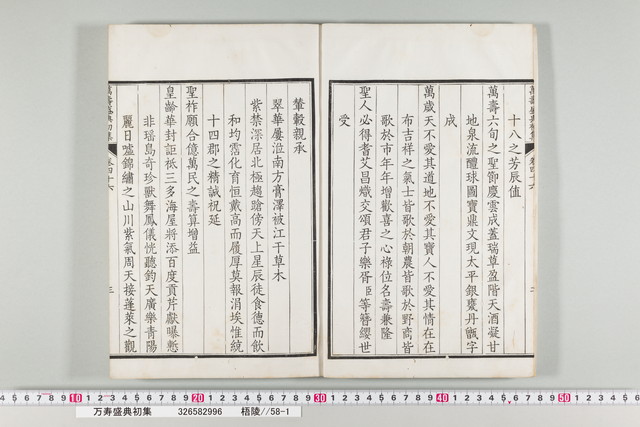 十八之芳辰值
萬壽六旬之聖節慶雲成蓋瑞草盈階天酒凝甘
地泉流醴球圖寶鼎文現太平銀甕丹甑字
成
萬歲天不愛其道地不愛其寶人不愛其情在在
布吉祥之氣士皆歌於朝農皆歌於野商皆
歌於市年年增歡喜之心祿位名壽兼隆
聖人必得耆艾昌熾交頌君子樂胥臣等簪纓世
受
萬壽盛典初集
卷四十六
二
輦轂親承
翠華屢涖南方膏澤被江干草木
紫禁深居北極趨蹌傍天上星辰徒食德而飲
和均霑化育恒戴高而履厚莫報涓埃惟統
十四郡之精誠祝延
聖祚願合億萬民之壽算增益
皇齡華封詎祗三多海屋將添百度貢芹獻曝慙
非瑶島奇珍獸舞鳳儀恍聽鈞天廣樂青陽
麗日噓錦繡之山川紫氣周天接蓬萊之觀
萬壽盛典初集
卷四十六
三
10 20 30 40 50
万寿盛典初集 326582996 梧陵//58-1